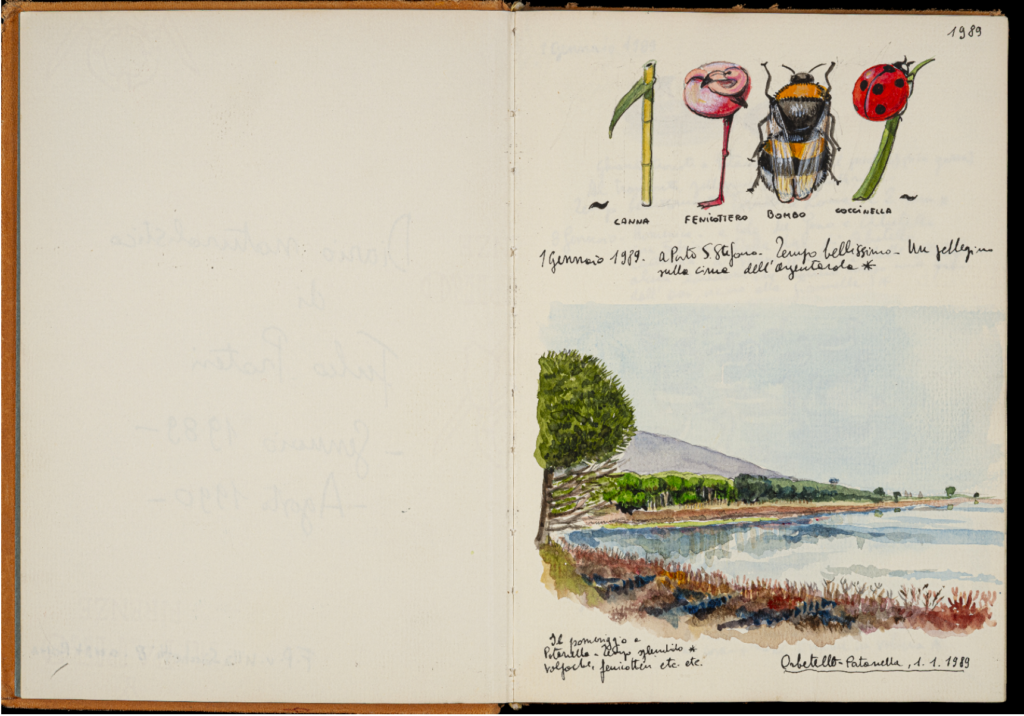 1989
CANNA FENICOTTERO BOMBO COCCINELLA
1 Gennaio 1989. a Porto S. Stefano. Tempo bellissimo. Un pellegrino
sulla cima dell'Argentarola *
Il pomeriggio a
Patanella. Tempo splendido *
volpoche, fenicotteri etc. etc.
Orbetello-Patanella, 1.1.1989